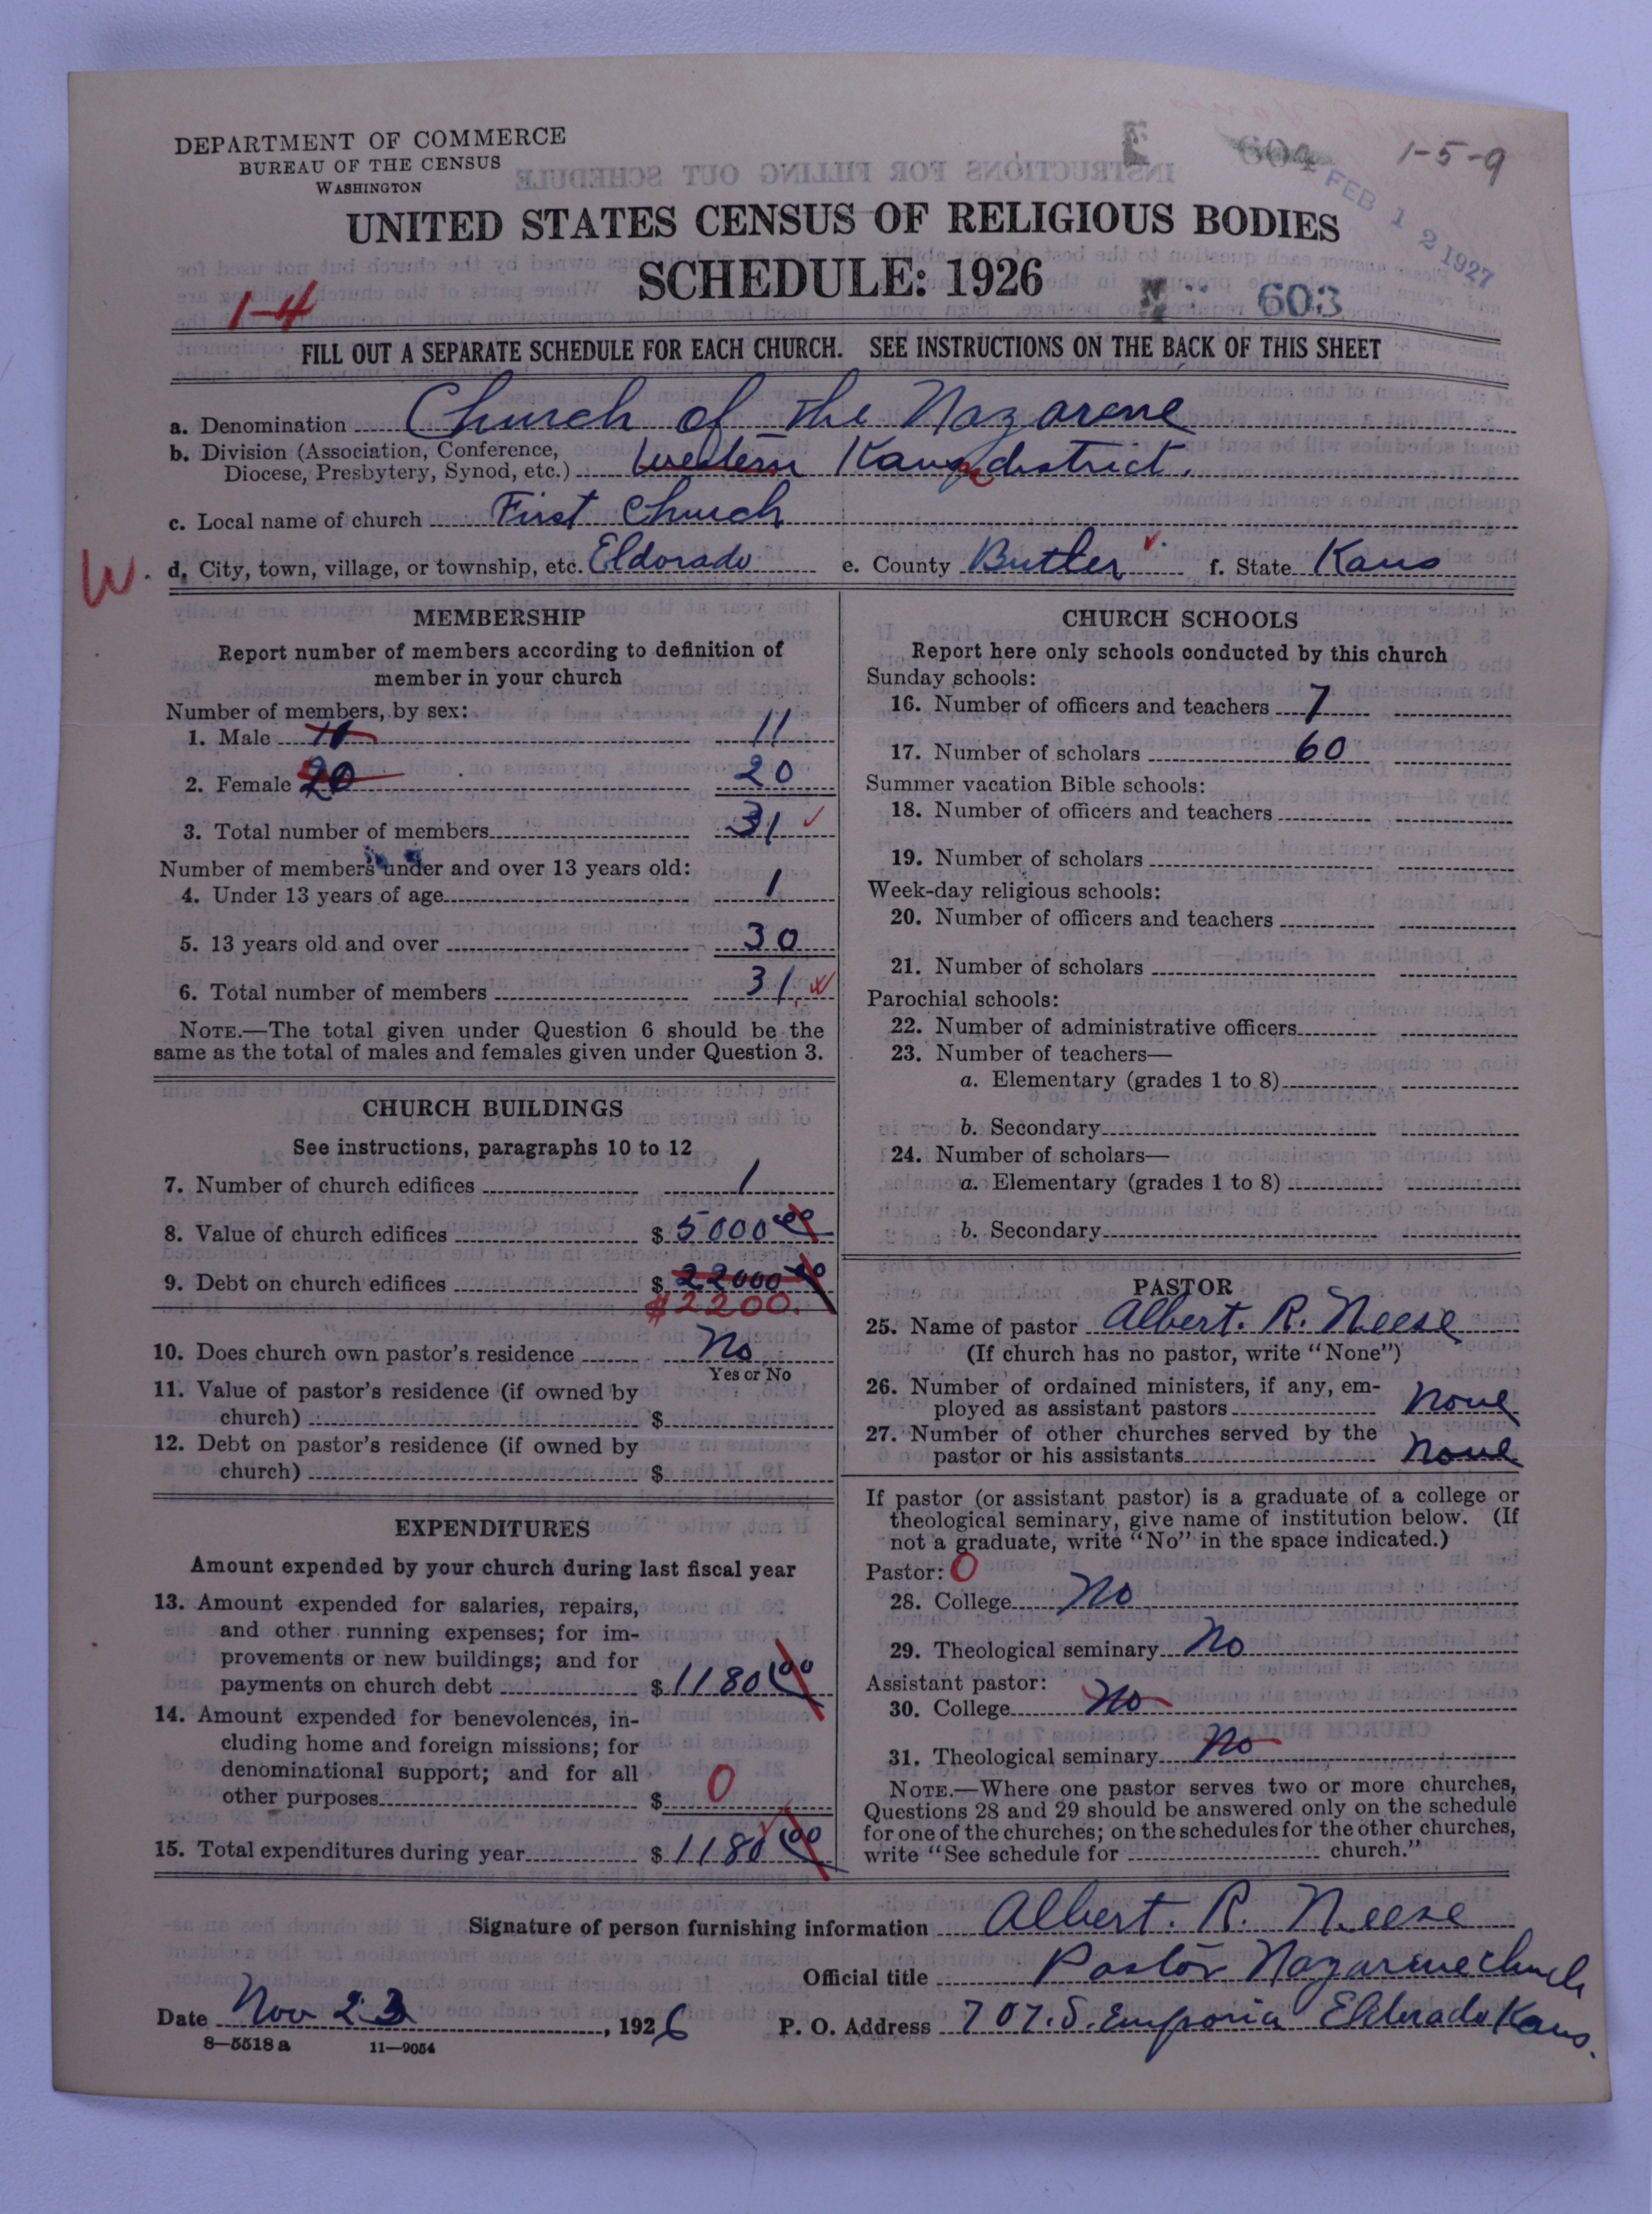 DEPARTMENT OF COMMERCE
BUREAU OF THE CENSUS
WASHINGTON
604 1-5-9
FEB 12 1927
UNITED STATES CENSUS OF RELIGIOUS BODIES
SCHEDULE: 1926
1-4
603
FILL OUT A SEPARATE SCHEDULE FOR EACH CHURCH. SEE INSTRUCTIONS ON THE BACK OF THIS SHEET
a. Denomination Church of the Nazarene
b. Division (Association, Conference,
Diocese, Presbytery, Synod, etc.) Western Kans district.
c. Local name of church First Church
W. d. City, town, village, or township, etc. Eldorado e. County Butler f. State Kans
MEMBERSHIP
Report number of members according to definition of
member in your church
Number of members, by sex:
1. Male 11 11
2. Female 20 20
3. Total number of members 31
Number of members under and over 13 years old:
4. Under 13 years of age 1
5. 13 years old and over 30
6. Total number of members 31
NOTE.—The total given under Question 6 should be the
same as the total of males and females given under Question 3.
CHURCH BUILDINGS
See instructions, paragraphs 10 to 12
7. Number of church edifices 1
8. Value of church edifices $ 5000 00
9. Debt on church edifices $ 22000 00
$2200.
10. Does church own pastor's residence No
Yes or No
11. Value of pastor's residence (if owned by
church) $
12. Debt on pastor's residence (if owned by
church) $
EXPENDITURES
Amount expended by your church during last fiscal year
13. Amount expended for salaries, repairs,
and other running expenses; for im-
provements or new buildings; and for
payments on church debt $ 1180 00
14. Amount expended for benevolences, in-
cluding home and foreign missions; for
denominational support; and for all
other purposes $ 0
15. Total expenditures during year $ 1180 00
CHURCH SCHOOLS
Report here only schools conducted by this church
Sunday schools:
16. Number of officers and teachers 7
17. Number of scholars 60
Summer vacation Bible schools:
18. Number of officers and teachers
19. Number of scholars
Week-day religious schools:
20. Number of officers and teachers
21. Number of scholars
Parochial schools:
22. Number of administrative officers
23. Number of teachers—
a. Elementary (grades 1 to 8)
b. Secondary
24. Number of scholars—
a. Elementary (grades 1 to 8)
b. Secondary
PASTOR
25. Name of pastor Albert. R. Neese
(If church has no pastor, write "None")
26. Number of ordained ministers, if any, em-
ployed as assistant pastors none
27. Number of other churches served by the
pastor or his assistants none
If pastor (or assistant pastor) is a graduate of a college or
theological seminary, give name of institution below. (If
not a graduate, write "No" in the space indicated.)
Pastor: 0
28. College No
29. Theological seminary No
Assistant pastor:
30. College No
31. Theological seminary No
NOTE.—Where one pastor serves two or more churches,
Questions 28 and 29 should be answered only on the schedule
for one of the churches; on the schedules for the other churches,
write "See schedule for church."
Signature of person furnishing information Albert. R. Neese
Official title Pastor Nazarene church
Date Nov 23, 1926 P. O. Address 707. S. Emporia Eldorado Kans.
8—5518a 11—9054